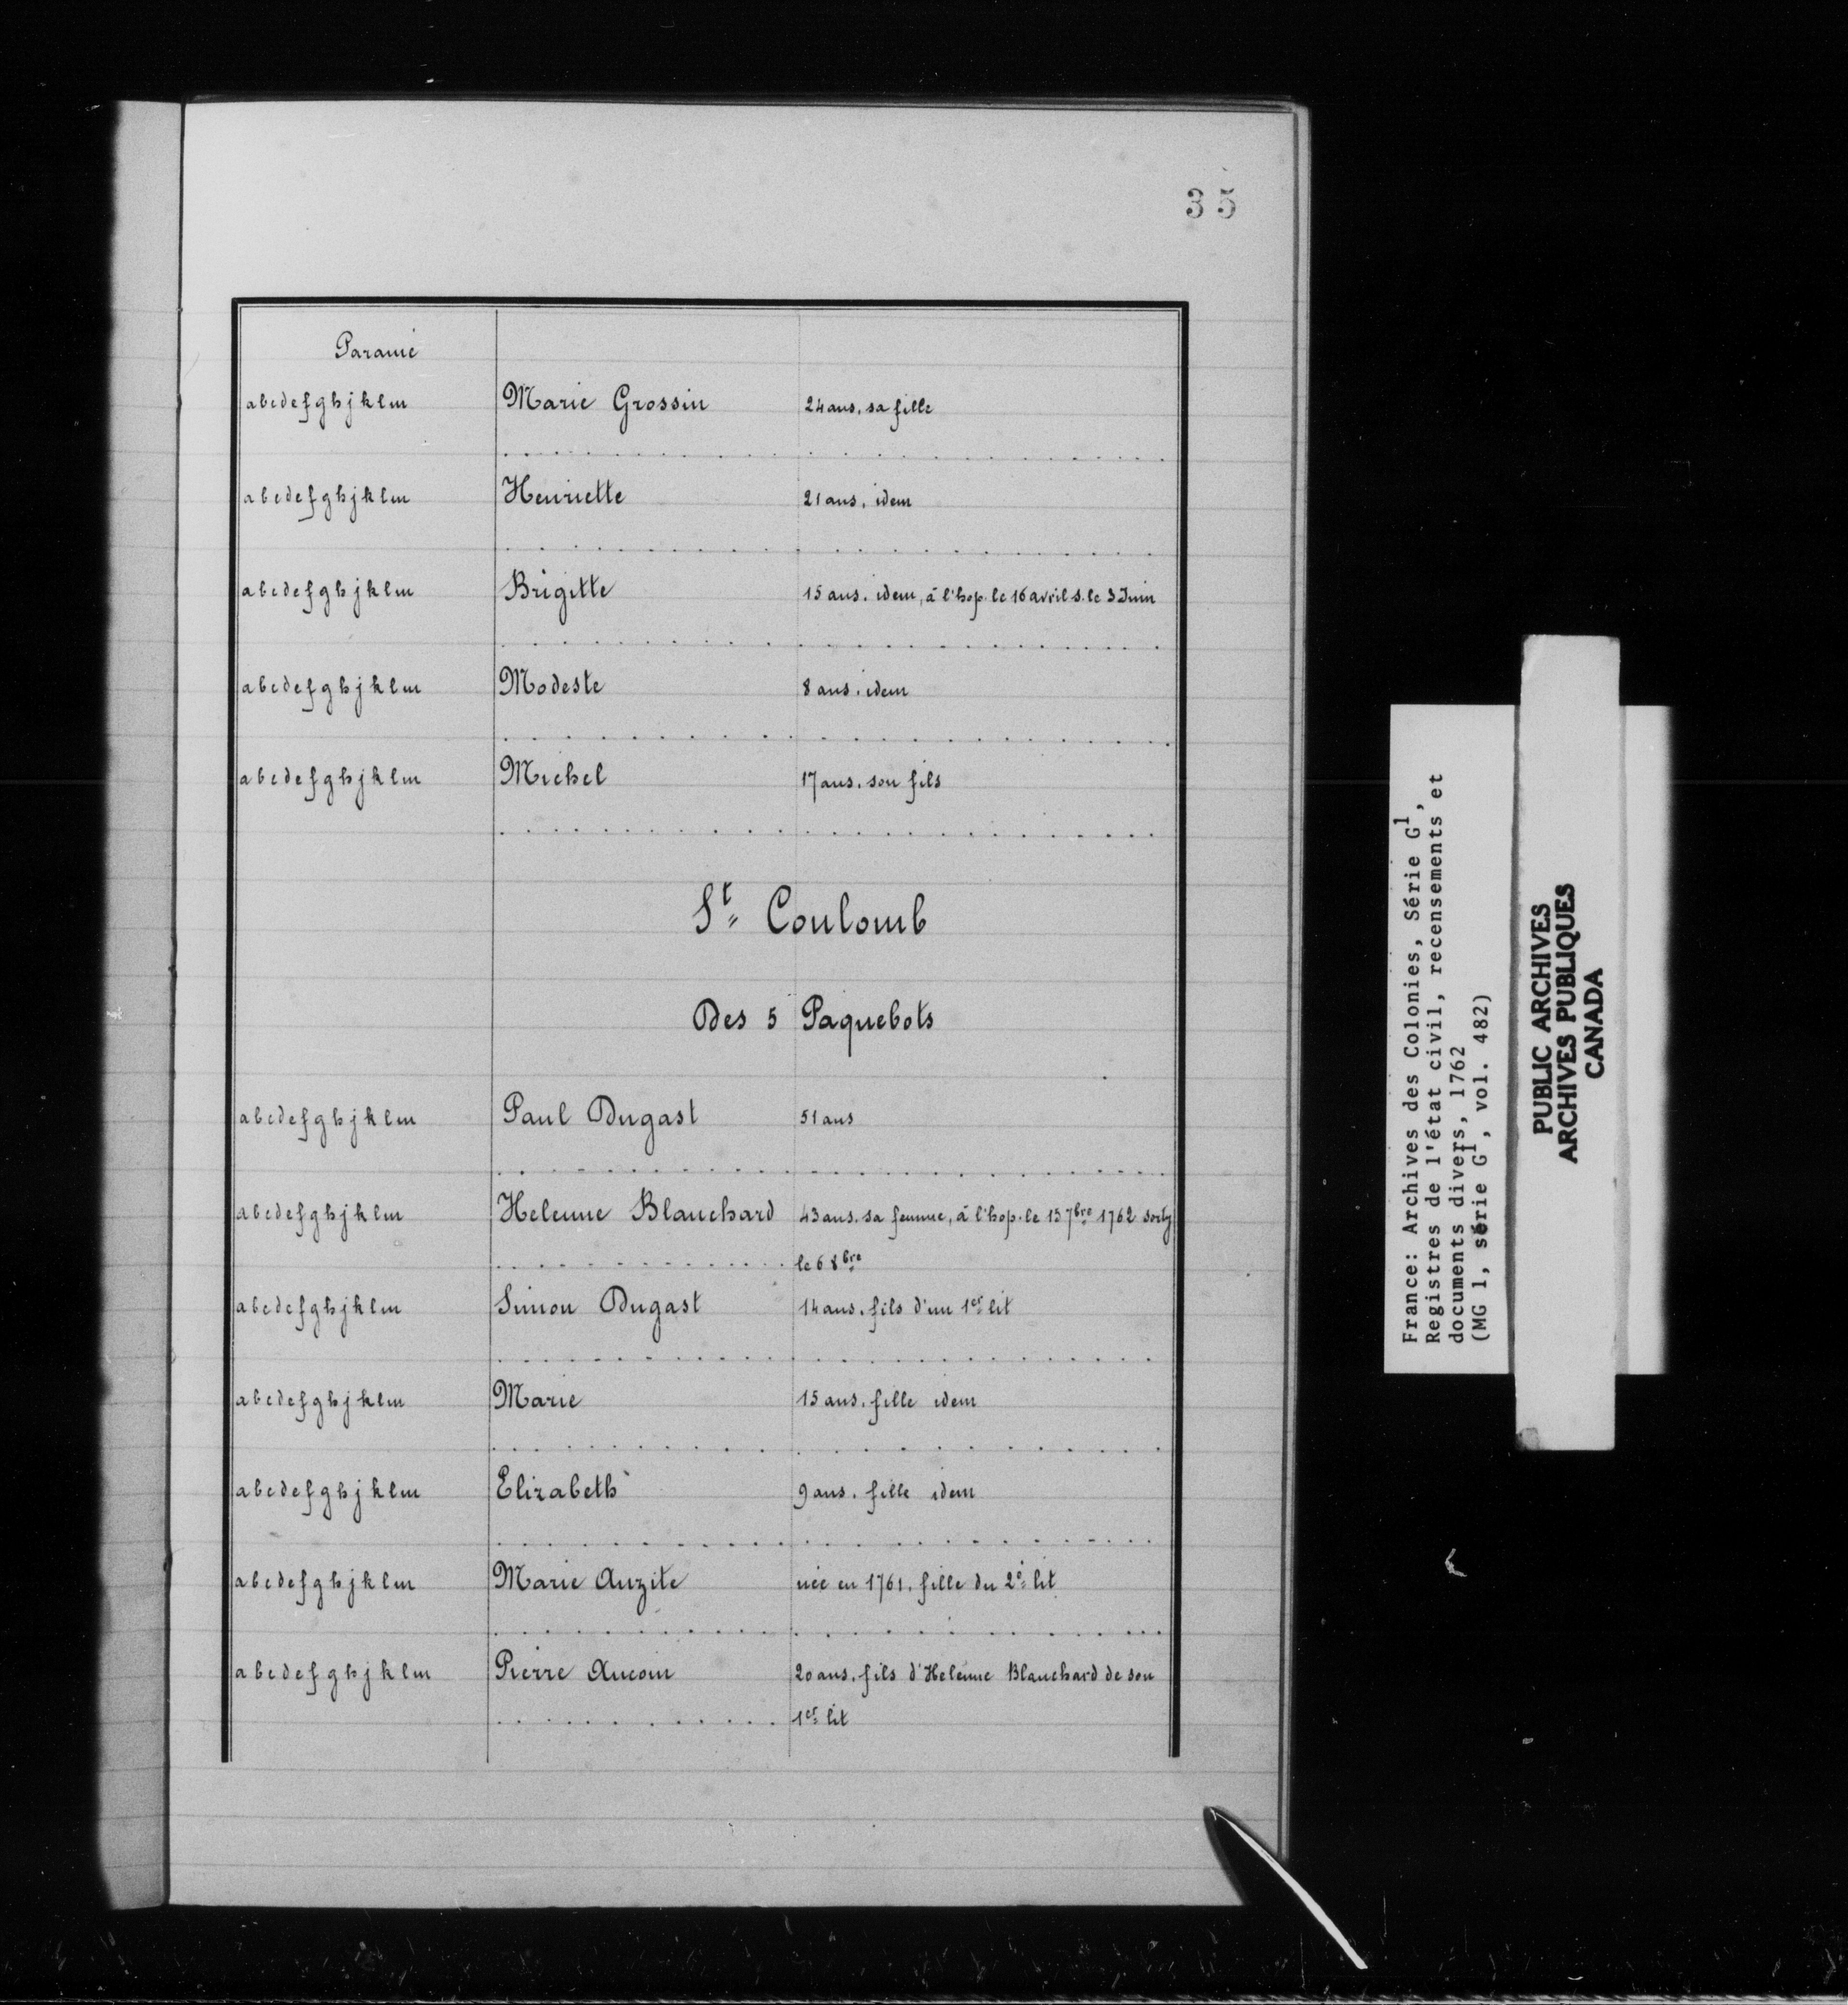 35
Paramé
abcdefghjklm Marie Grossin 24 ans. sa fille
abcdefghjklm Henriette 21 ans. idem
abcdefghjklm Brigitte 15 ans. idem, à l'hop. le 16 avril s. le 3 Juin
abcdefghjklm Modeste 8 ans. idem
abcdefghjklm Michel 17 ans. son fils
St Coulomb
Des 5 Paquebots
abcdefghjklm Paul Dugast 51 ans
abcdefghjklm Helenne Blanchard 43 ans. sa femme, à l'hop. le 13 7bre 1762 sorty
le 6 8bre
abcdefghjklm Simon Dugast 14 ans. fils d'un 1er lit
abcdefghjklm Marie 15 ans. fille idem
abcdefghjklm Elizabeth 9 ans. fille idem
abcdefghjklm Marie Auzite née en 1761. fille du 2e lit
abcdefghjklm Pierre Aucoin 20 ans. fils d'Helenne Blanchard de son
1er lit
France: Archives des Colonies, Série G1,
Registres de l'état civil, recensements et
documents divers, 1762
(MG 1, série G1, vol. 482)
PUBLIC ARCHIVES
ARCHIVES PUBLIQUES
CANADA